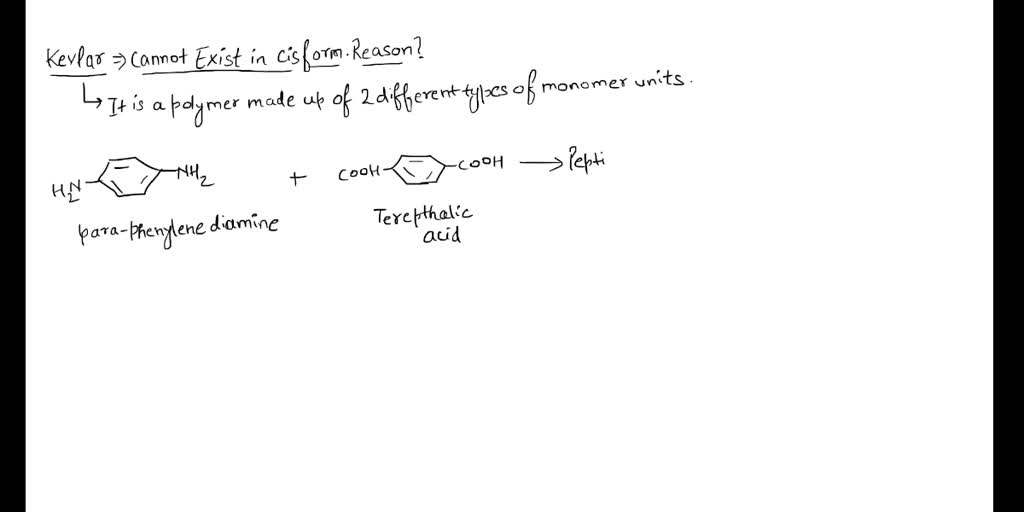 Kevlar ⇒ Cannot Exist in cis form. Reason?
↳ It is a polymer made up of 2 different types of monomer units.
H2N- -NH2 + COOH- -COOH → Pepti
para-phenylene diamine Terepthalic
acid